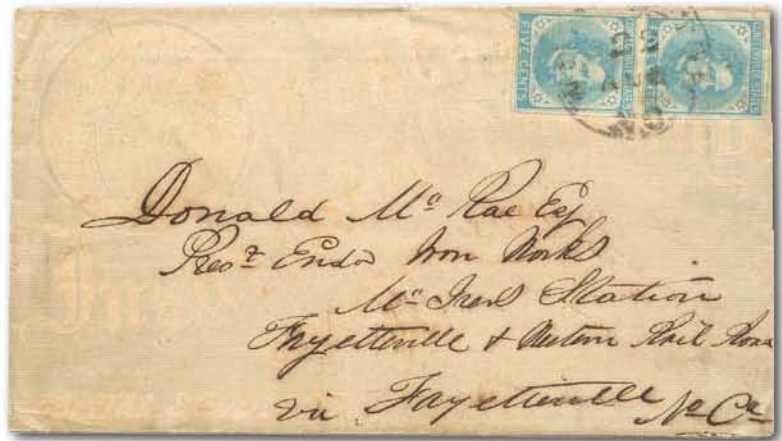 FIVE CENTS
Donald Mc Rae Esq
Prest Endor Iron Works
Mc Ivers Station
Fayetteville & Western Rail Road
via Fayetteville No Ca